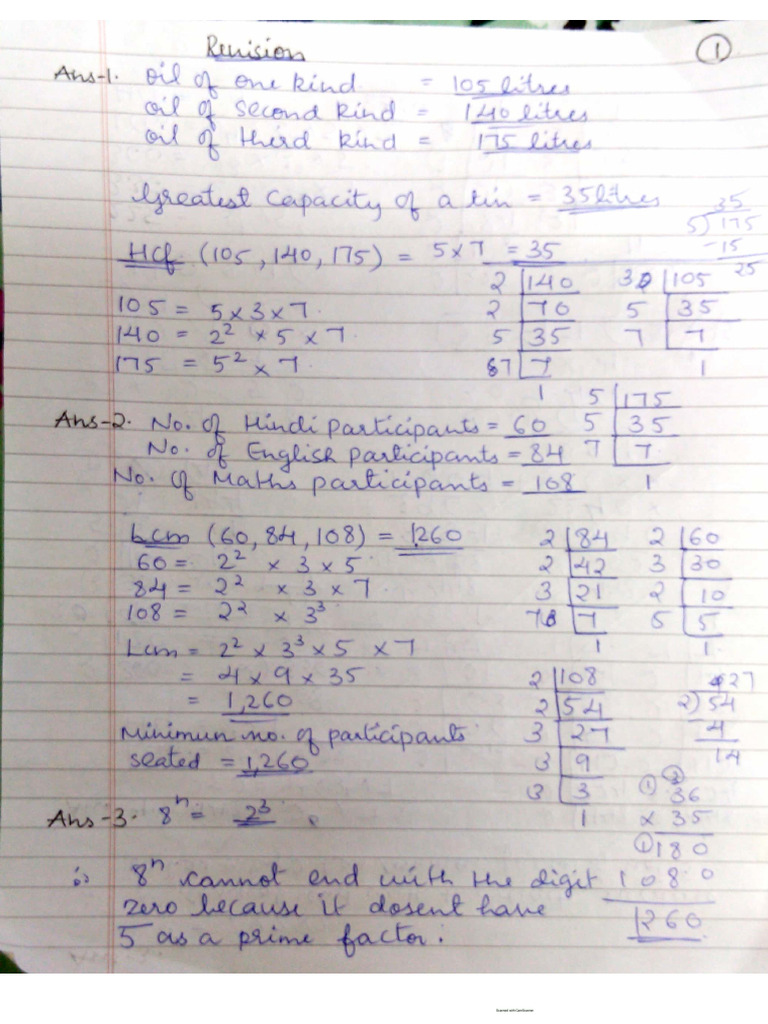 Revision
1
Ans-1. Oil of one kind = 105 litres
Oil of second kind = 140 litres
Oil of third kind = 175 litres
Greatest Capacity of a tin = 35 litres
35
5)175
-15
25
Hcf (105, 140, 175) = 5 x 7 = 35
105 = 5 x 3 x 7
140 = 2² x 5 x 7
175 = 5² x 7
2 | 140
2 | 70
5 | 35
7 | 7
1
3 | 105
5 | 35
7 | 7
1
5 | 175
5 | 35
7 | 7
1
Ans-2. No. of Hindi participants = 60
No. of English participants = 84
No. of Maths participants = 108
Lcm (60, 84, 108) = 1260
60 = 2² x 3 x 5
84 = 2² x 3 x 7
108 = 2² x 3³
Lcm = 2² x 3³ x 5 x 7
= 4 x 9 x 35
= 1,260
Minimun no. of participants
seated = 1,260
2 | 84
2 | 42
3 | 21
7 | 7
1
2 | 60
3 | 30
2 | 10
5 | 5
1
2 | 108
2 | 54
3 | 27
3 | 9
3 | 3
1
27
2)54
4
14
1 2
36
x 35
1 180
1080
1260
Ans-3. 8ⁿ = 2³
∴ 8ⁿ cannot end with the digit
zero because it dosent have
5 as a prime factor.
Scanned with CamScanner